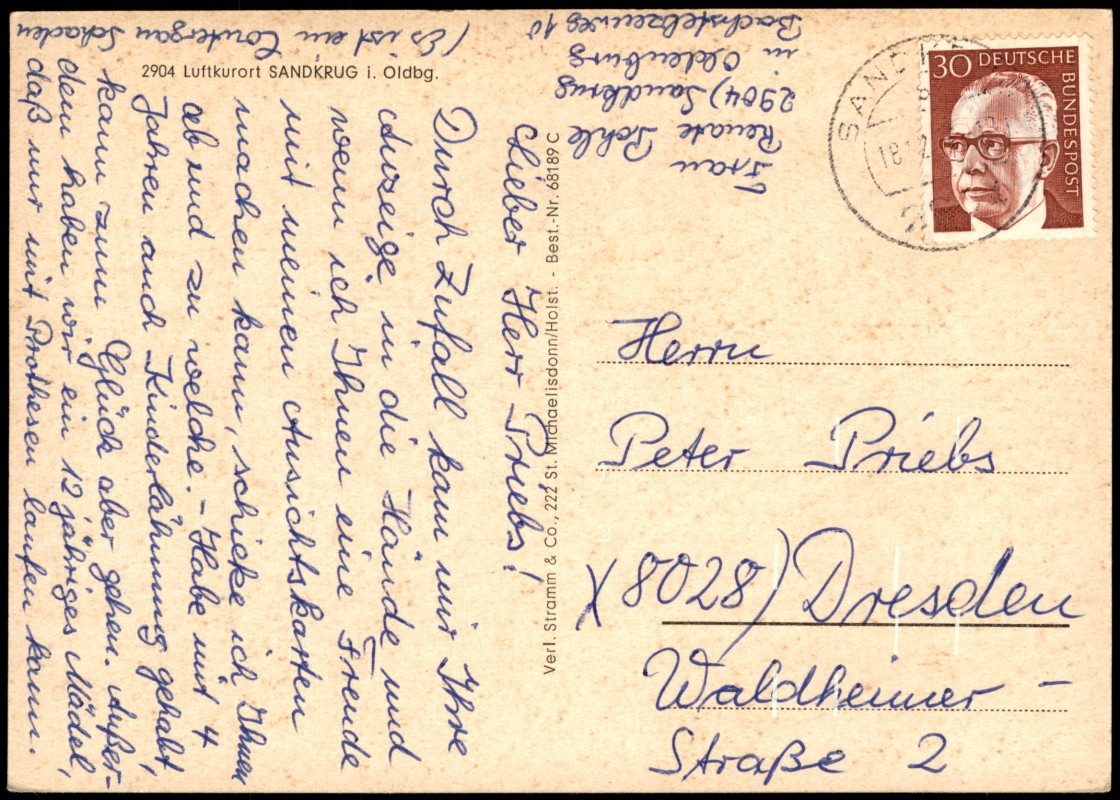 2904 Luftkurort SANDKRUG i. Oldbg.
Lieber Herr Priebs!
Durch Zufall kam mir Ihre
Anzeige in die Hände und
wenn ich Ihnen eine Freude
mit meinen Ansichtskarten
machen kann, schicke ich Ihnen
ab und zu welche. - Habe mit 4
Jahren auch Kinderlähmung gehabt,
kann zum Glück aber gehen. Außer-
dem haben wir ein 12 jähriges Mädel,
daß nur mit Prothesen laufen kann.
(Es ist ein Contergan Schaden
Frau
Renate Pohle
2904) Sandkrug
in Oldenburg
Bachstelzenweg 10
Verl. Stramm & Co., 222 St. Michaelisdonn/Holst. - Best.-Nr. 68189 C
30 DEUTSCHE
BUNDESPOST
Herrn
Peter Priebs
X 8028) Dresden
Waldheimer-
Straße 2